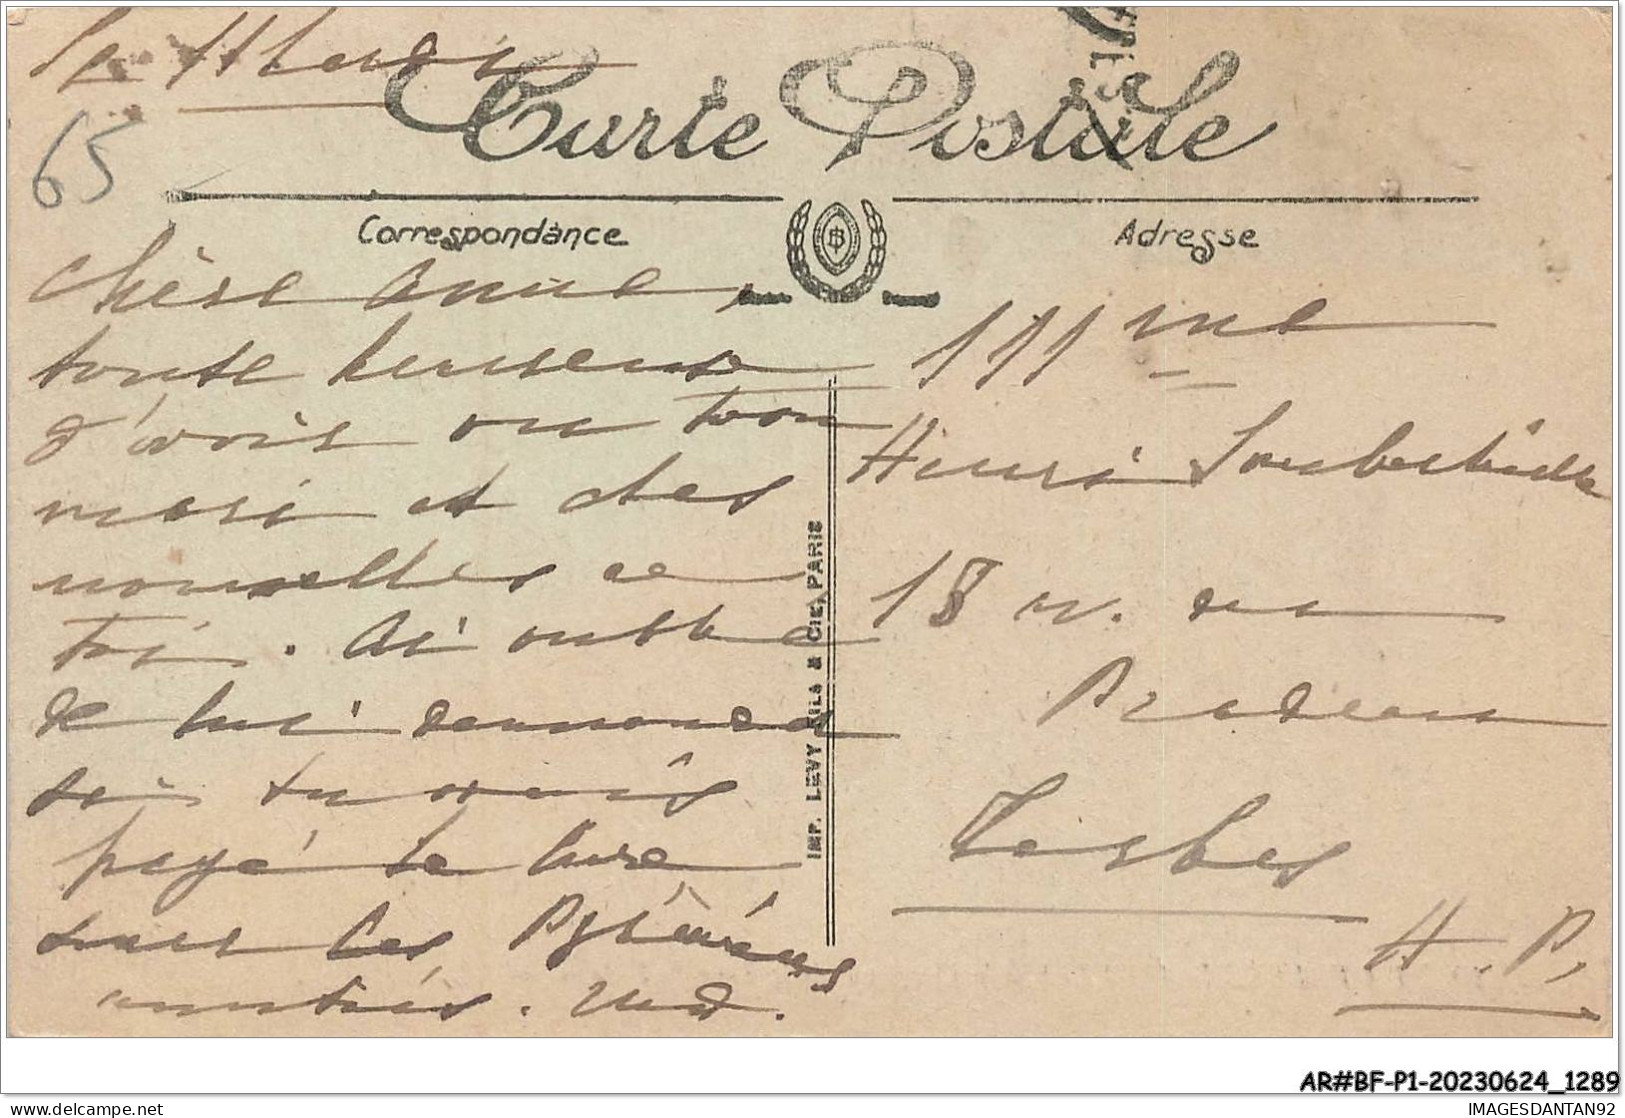 65
Carte Postale
Correspondance
Adresse
chère Anne,
toute heureuse
d'avoir vu ton
mari et des
nouvelles de
toi. Ai oublié
de lui demander
si tu avais
payé le livre
sur les Pyrénées
IMP. LEVY FILS & CIE, PARIS
Mme
Henri
18 r. du
Tarbes
H.P.
AR#BF-P1-20230624_1289
IMAGESDANTAN92